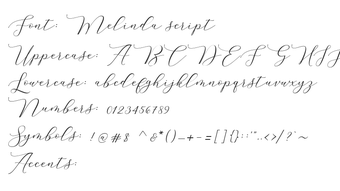 Font: Melinda script
Uppercase: A B C D E F G H I J
Lowercase: abcdefghijklmnopqrstuvwxyz
Numbers: 0123456789
Symbols: !@#$ ^&*()_+-=[]{}:;"',.<>/?`~
Accents: